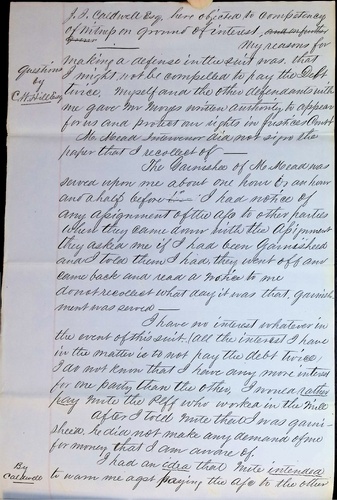 J. J. Caldwell Esq. here objected to competency
of witness on ground of interest,
My reasons for
making a defense in the suit was, that
I might not be compelled to pay the Debt
twice. Myself and the other defendants with
me gave Mr written authority to appear
for us and protect my rights in Justices Court
Questions
by
C. W. Hill Esq
Mr Mead Intervenor did not sign the
paper that I recollect of —
The Garnishee of Mr Mead was
served upon me about one hour or an hour
and a half before I had notice of
any assignment of the a/c to other parties
When they came down with the assignment
they asked me if I had been Garnisheed
and I told them I had they went off and
came back and read a notice to me
do not recollect what day it was that, garnish-
ment was served —
I have no interest whatever in
the event of this suit. (all the interest I have
in the matter is to not pay the debt twice)
I do not know that I have any more interest
for one party than the other, I would rather
pay who worked in the Mill
After I told that I was garni-
sheed he did not make any demand of me
for money that I am aware of.
By
Caldwell
I had an idea that intended
to warn me agst paying the a/c to the other